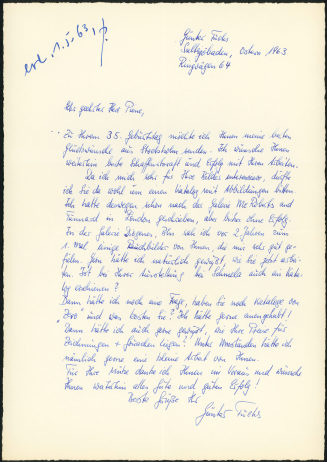 erl. 1.5.63
Günter Fuchs
Saltsjöbaden, Ostern 1963
Ringvägen 64
Sehr geehrter Herr Piene,
Zu Ihrem 35. Geburtstag möchte ich Ihnen meine besten
Glückwünsche aus Stockholm senden. Ich wünsche Ihnen
weiterhin beste Schaffenskraft und Erfolg mit Ihren Arbeiten.
Da ich mich sehr für Ihre Bilder interessiere, dürfte
ich Sie da wohl um einen Katalog mit Abbildungen bitten.
Ich hatte deswegen schon nach der Galerie McRoberts und
Tunnard in London geschrieben, aber bisher ohne Erfolg.
In der Galerie Diogenes, Bln sah ich vor 2 Jahren zum
1. Mal einige Rauchbilder von Ihnen die mir sehr gut ge-
fielen. Gern hätte ich natürlich gewußt, wie Sie jetzt arbei-
ten. Ist bei Ihrer Ausstellung bei Schmela auch ein Kata-
log erschienen?
Dann hätte ich noch eine Frage, haben Sie noch Kataloge von
Zero und was kosten sie? Ich hätte gerne
Dann hätte ich auch gern gewußt, wie Ihre Preise für
Zeichnungen + Gouachen liegen? Unter Umständen hätte ich
nämlich gerne eine kleine Arbeit von Ihnen.
Für Ihre Mühe danke ich Ihnen im Voraus und wünsche
Ihnen weiterhin alles Gute und guten Erfolg!
Beste Grüße Ihr
Günter Fuchs